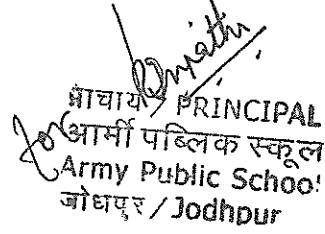 प्राचार्य / PRINCIPAL
for आर्मी पब्लिक स्कूल
Army Public School
जोधपुर / Jodhpur